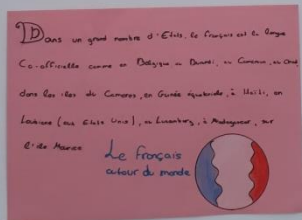 Dans un grand nombre d'Etats, le français est la langue
Co-officielle comme en Belgique au Burundi, au Cameroun, au Chad
dans les iles du Comores, en Guinée équatoriale, à Haïti, en
Louisiane (aux Etats Unis), au Luxembourg, à Madagascar, sur
l'ile Maurice
Le français
autour du monde